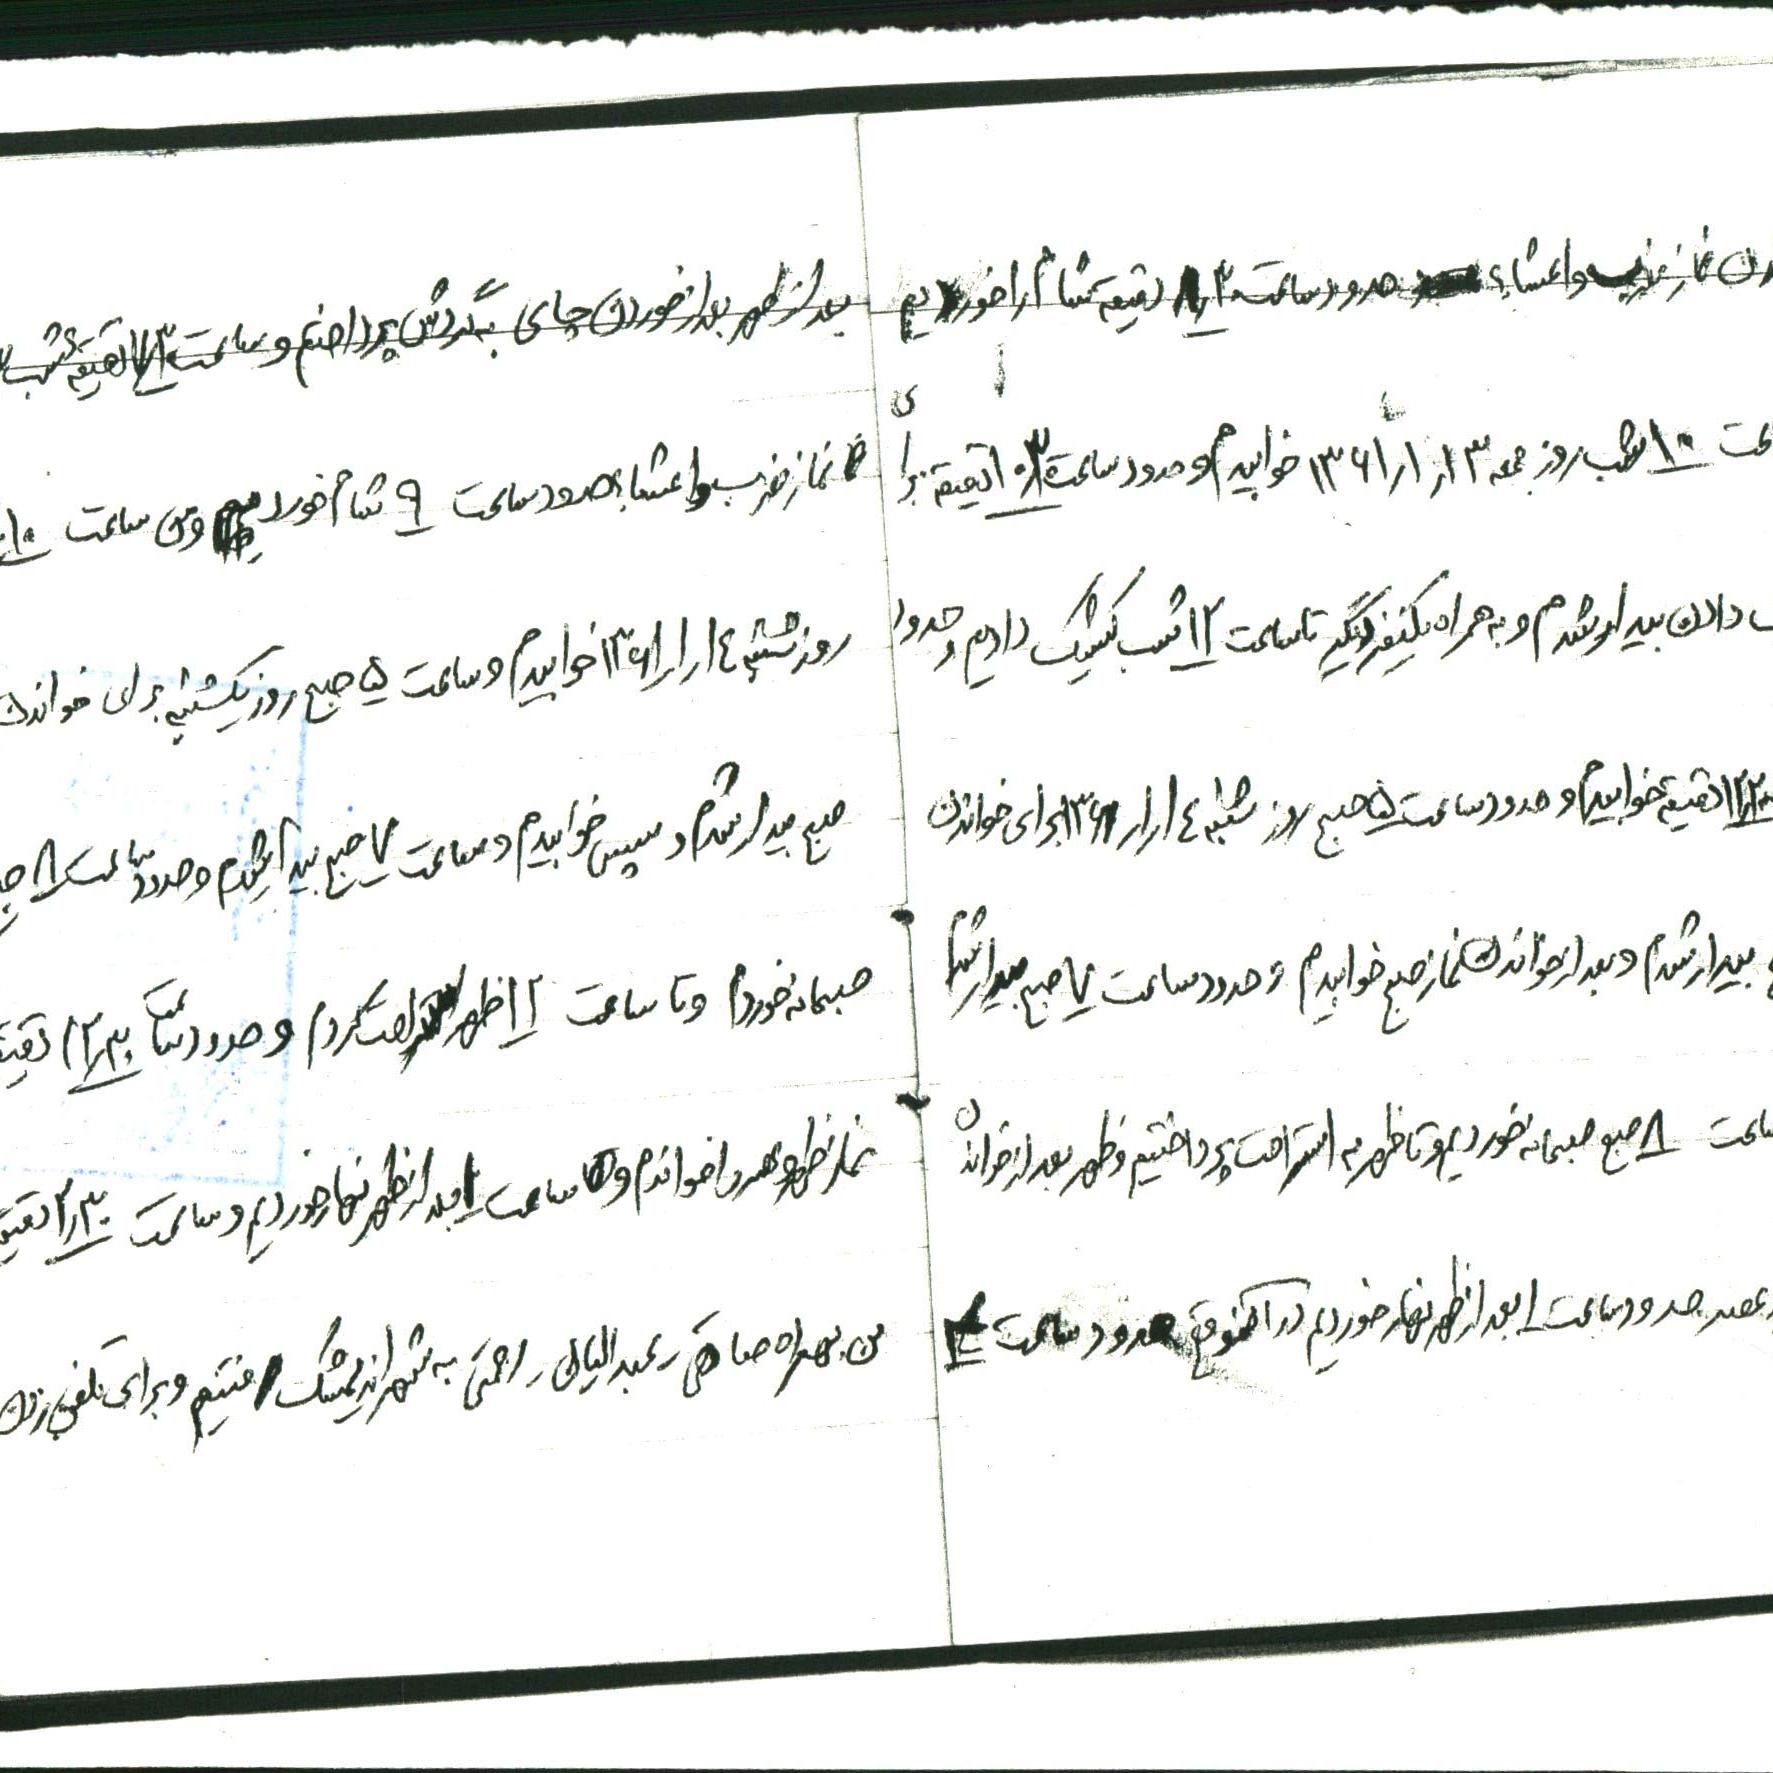 نماز مغرب و اعشاء حدود ساعت ۸٫۳۰ دقیقه شام را خوردیم
۱۰ شب روز جمعه ۱۳ر۱ر۱۳۶۱ خوابیدم و حدود ساعت ۱۰٫۳۰ دقیقه برای
دادن بیدار شدم و به همراه یکنفر دیگر تا ساعت ۱۲ شب کشیک دادیم و حدود
دقیقه خوابیدم و حدود ساعت ۵ صبح روز شنبه ۱۴ر۱ر۱۳۶۱ برای خواندن
بیدار شدم و بعد از خواندن نماز صبح خوابیدم و حدود ساعت ۷ صبح بیدار شدم
ساعت ۸ صبح صبحانه خوردیم و تا ظهر به استراحت پرداختیم و ظهر بعد از خواندن
عصر حدود ساعت ۱ بعد از ظهر نهار خوردیم در آنموقع حدود ساعت ۴
بعد از ظهر بعد از خوردن چای به گردش پرداختم و ساعت ۷٫۳۰ دقیقه شب
نماز مغرب و اعشاء حدود ساعت ۹ شام خوردیم ومن ساعت ۱۰
روز شنبه ۱۴ر۱ر۱۳۶۱ خوابیدم و ساعت ۵ صبح روز یکشنبه برای خواندن
صبح بیدار شدم و سپس خوابیدم و ساعت ۷ صبح بیدار شدم و حدود ساعت ۸
صبحانه خوردم و تا ساعت ۱۲ ظهر استراحت کردم و حدود ساعت ۱۲٫۳۰ دقیقه
نماز ظهر و عصر را خواندم و ساعت ۱ بعد از ظهر نهار خوردیم و ساعت ۲٫۳۰ دقیقه
من بهمراه صادقی، عبداللیان، رحمتی به شهر اندیمشک رفتیم و برای تلفن زدن